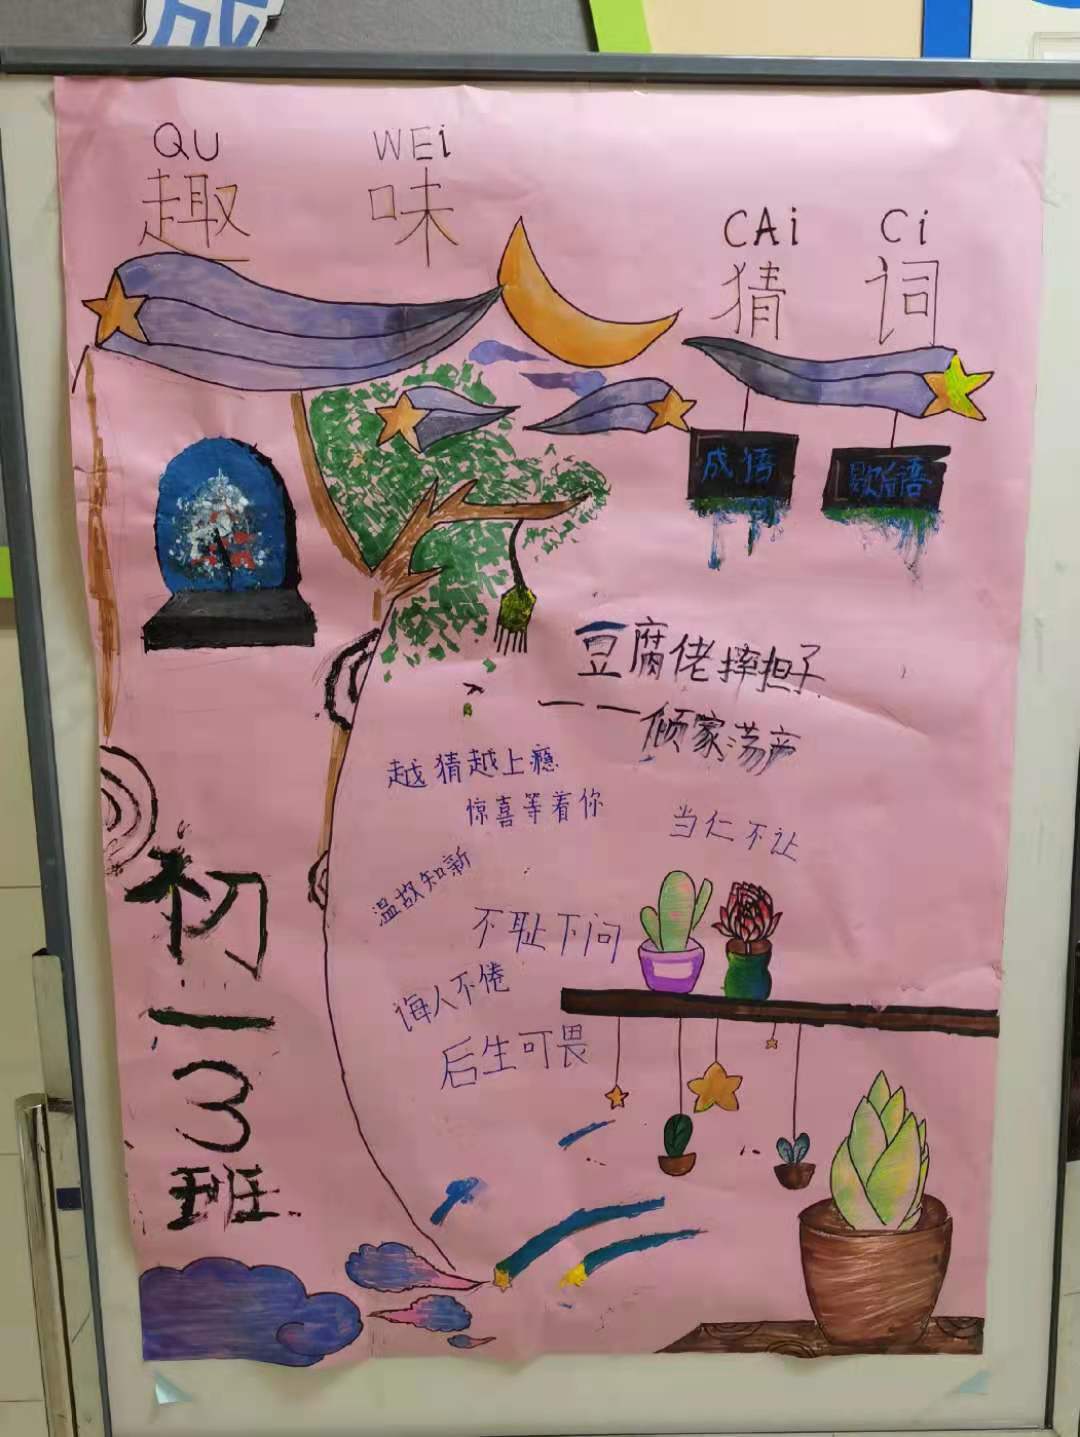 QU WEi
趣 味
CAi Ci
猜 词
成语
歇后语
豆腐佬摔担子
——倾家荡产
越猜越上瘾
惊喜等着你
当仁不让
温故知新
不耻下问
诲人不倦
后生可畏
初一3班